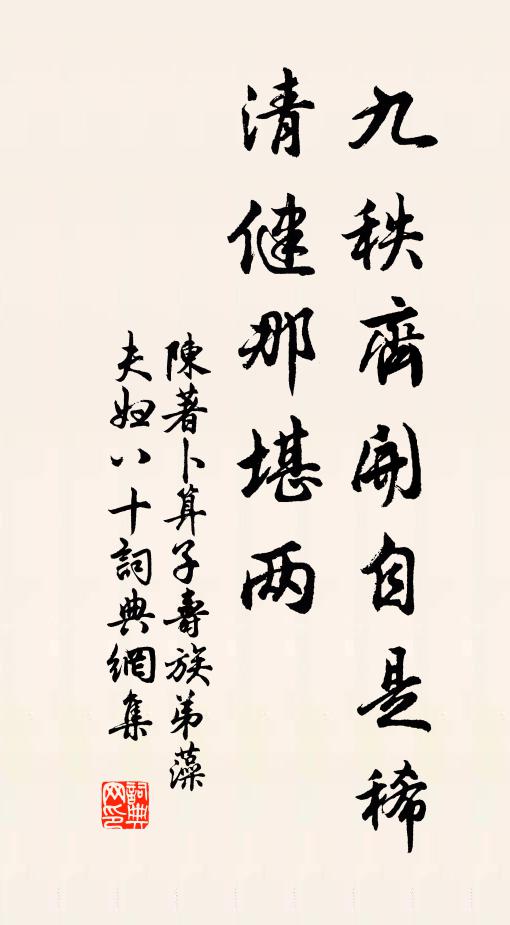 九秩齊開自是稀
清健那堪两
陳著卜算子壽族弟藻
夫妇八十詞典網集
詞典网印